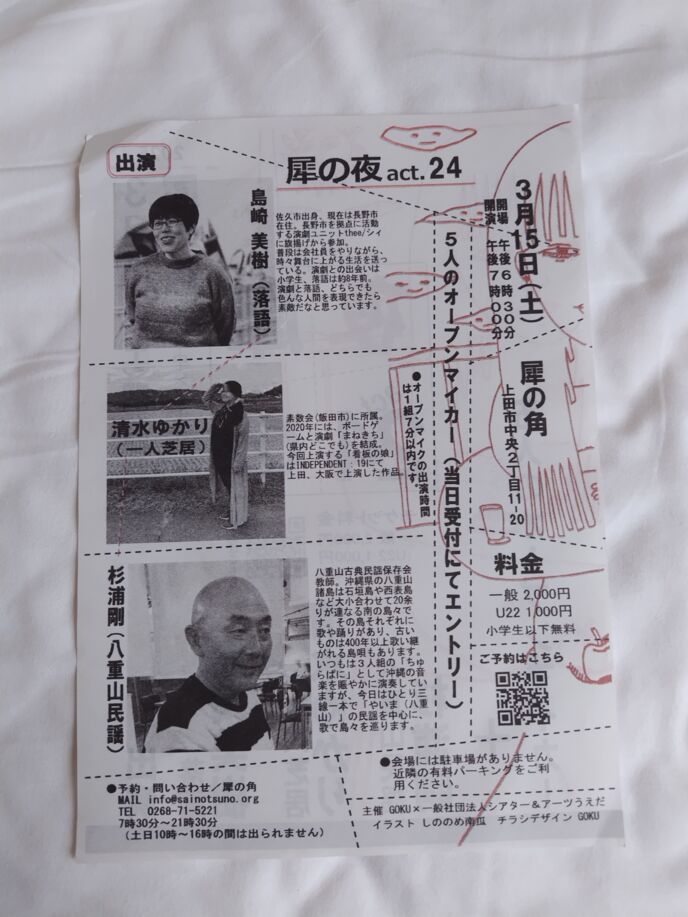 出演
犀の夜 act. 24
島崎 美樹（落語）
佐久市出身、現在は長野市
在住。長野市を拠点に活動
する演劇ユニットthee/シイ
に旗揚げから参加。
普段は会社員をやりながら、
時々舞台に上がる生活を送っ
ている。演劇との出会いは
小学生、落語は約8年前。
演劇と落語、どちらでも
色んな人間を表現できたら
素敵だなと思っています。
清水ゆかり
（一人芝居）
素数会(飯田市)に所属。
2020年には、ボードゲ
ームと演劇「まねきち」
(県内どこでも)を結成。
今回上演する「看板の娘」
はINDEPENDENT：19にて
上田、大阪で上演した作品。
杉浦剛（八重山民謡）
八重山古典民謡保存会
教師。沖縄県の八重山
諸島は石垣島や西表島
など大小合わせて20余
りが連なる南の島々で
す。その島それぞれに
歌や踊りがあり、古い
ものは400年以上歌い継
がれる島唄もあります。
いつもは３人組の「ちゅ
らぱに」として沖縄の音
楽を賑やかに演奏してい
ますが、今日はひとり三
線一本で「やいま（八重
山）」の民謡を中心に、
歌で島々を巡ります。
5人のオープンマイカー（当日受付にてエントリー）
●オープンマイクの出演時間
は１組７分以内です。
3月15日（土）
開場 午後６時３０分
開演 午後７時００分
犀の角
上田市中央２丁目11-20
料金
一般 2,000円
U22 1,000円
小学生以下無料
ご予約はこちら
●会場には駐車場がありません。
近隣の有料パーキングをご利
用ください。
●予約・問い合わせ／犀の角
MAIL info@sainotsuno.org
TEL 0268-71-5221
7時30分～21時30分
（土日10時～16時の間は出られません）
主催 GOKU×一般社団法人シアター＆アーツうえだ
イラスト しののめ南瓜 チラシデザイン GOKU